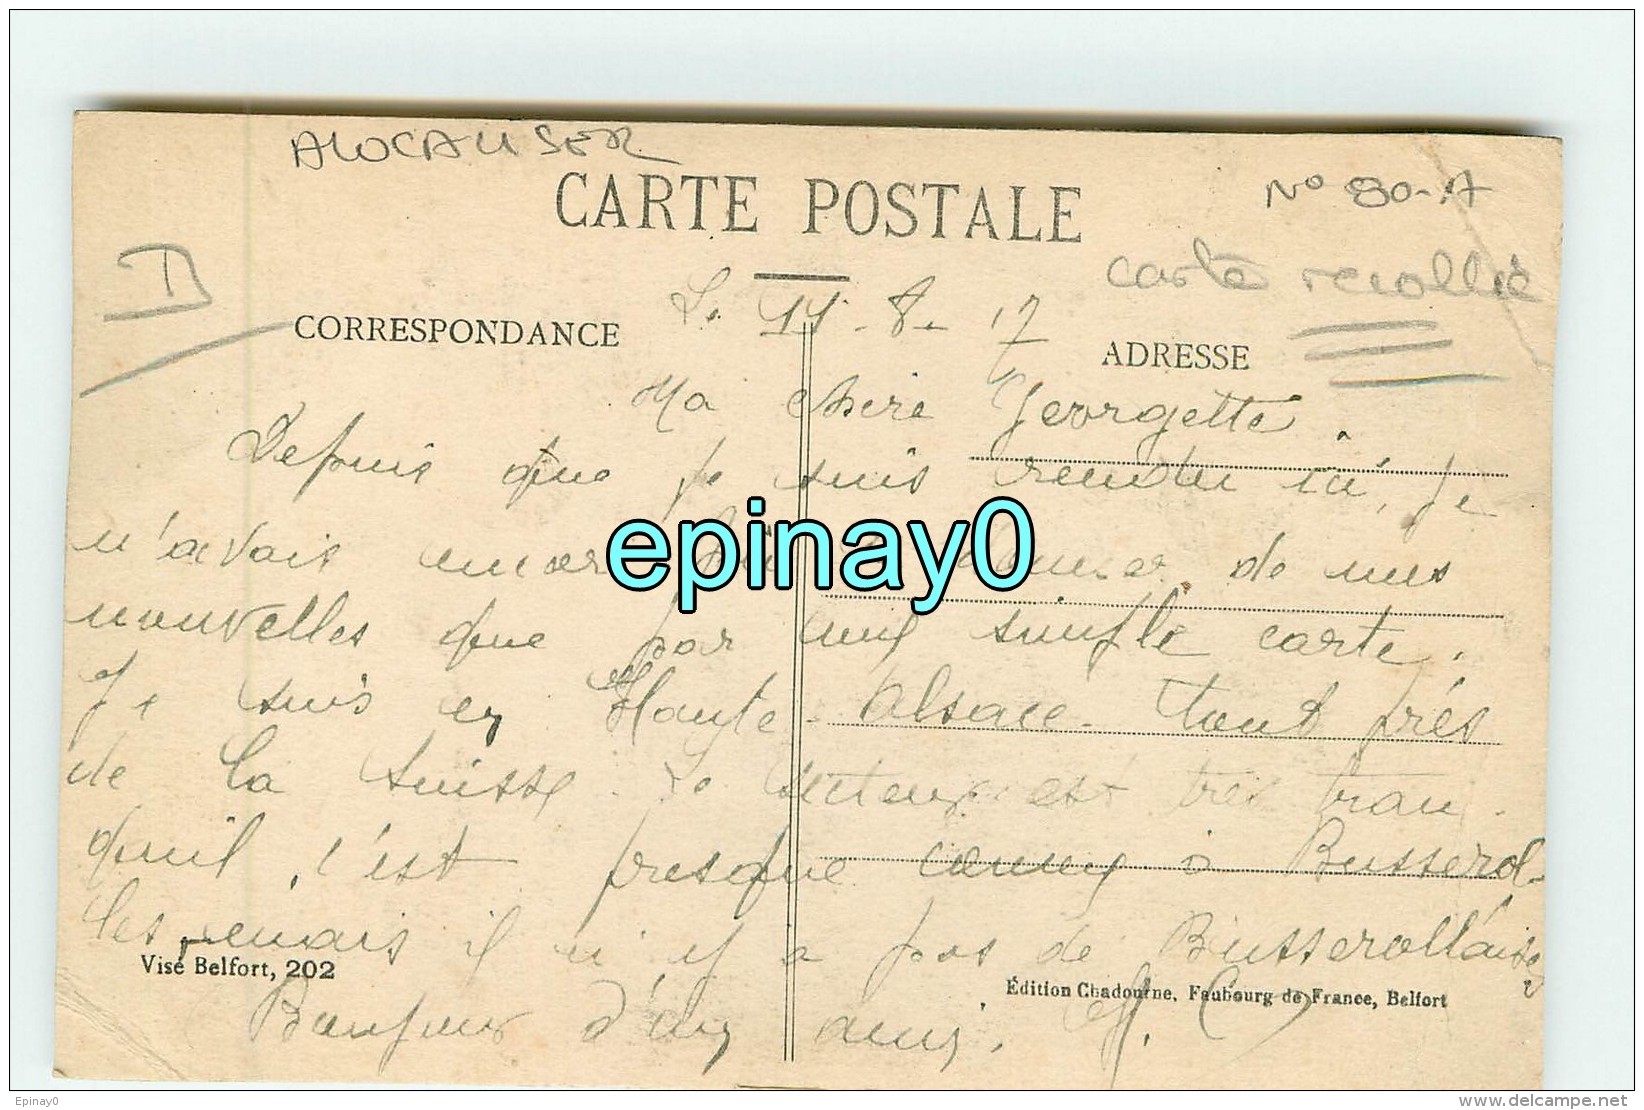 ALOCAUSER
CARTE POSTALE
N° 90-A
carte recollée
CORRESPONDANCE
Le 14-8-17
ADRESSE
Ma chère Georgette.
Depuis que je suis rendu ici, je
n'avais encore donner de mes
nouvelles que par une simple carte.
Je suis en Haute-Alsace - tout près
de la Suisse. Le secteur est très tran-
quil, c'est presque comme à Busserol-
les, mais il n'y a pas de Busserollaises
Visé Belfort, 202
Édition Chadourne, Faubourg de France, Belfort
Bonjour d'un ami.
epinay0
Epinay0
delcampe.net